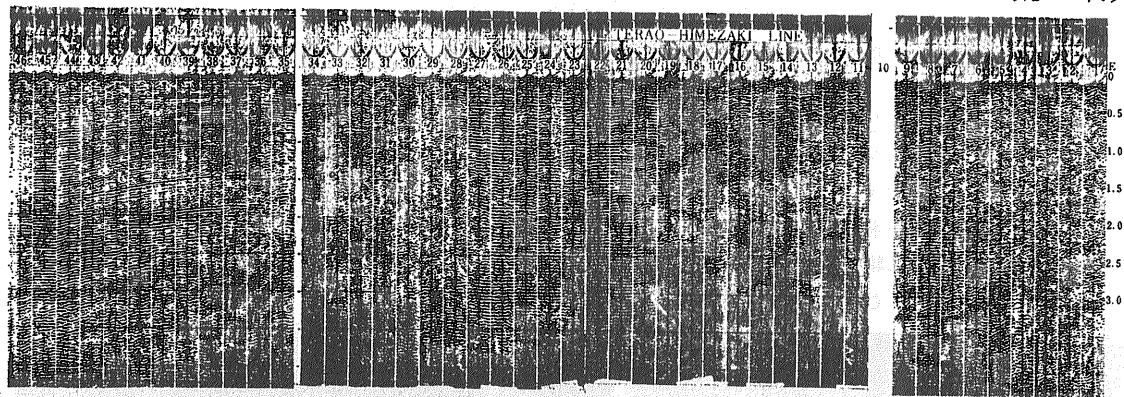 TERAO-HIMEZAKI LINE
46 45 44 43 42 41 40 39 38 37 36 35 34 33 32 31 30 29 28 27 26 25 24 23 22 21 20 19 18 17 16 15 14 13 12 11 10 9 8 7 6 5 4 3 2 1 E
0
0.5
1.0
1.5
2.0
2.5
3.0